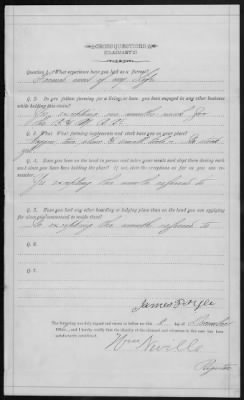 CROSS QUESTIONS
CLAIMANTS
Question 1. What experience have you had as a farmer?
Farmed most of my life
Q. 2. Do you follow farming for a living or have you been engaged in any other business
while holding this claim?
Yes excepting one months work for
the
Q. 3. What farming implements and stock have you on your place?
Wagon two plows & small tools
Q. 4. Have you been on the land in person and taken your meals and slept there during each
and since you have been holding the place? If not, give the exceptions as far as you can re-
member.
Yes excepting the month referred to
Q. 5. Have you had any other boarding or lodging place than on the land you are applying
for since you commenced to reside there?
No excepting the month referred to
Q.
Q.
Q.
James F Kyle
The foregoing was fully signed and sworn to before me this 8 day of December
Office, and I hereby certify that the identity of the claimant and witnesses in this case has been
satisfactorily established.
Wm Neville
Register